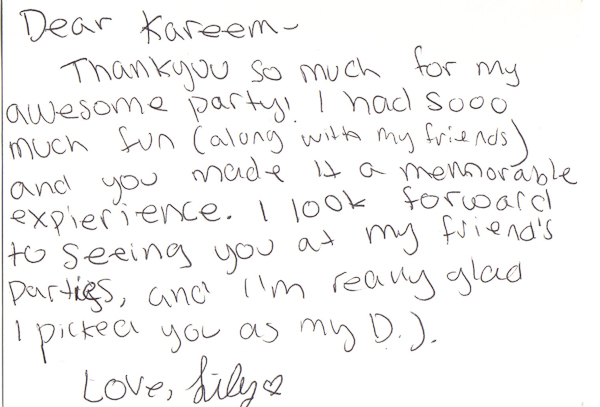 Dear Kareem-
Thankyou so much for my
awesome party! I had sooo
much fun (along with my friends)
and you made it a memorable
expierience. I look forward
to seeing you at my friend's
parties, and I'm really glad
I picked you as my D.J.
Love, Lily♡